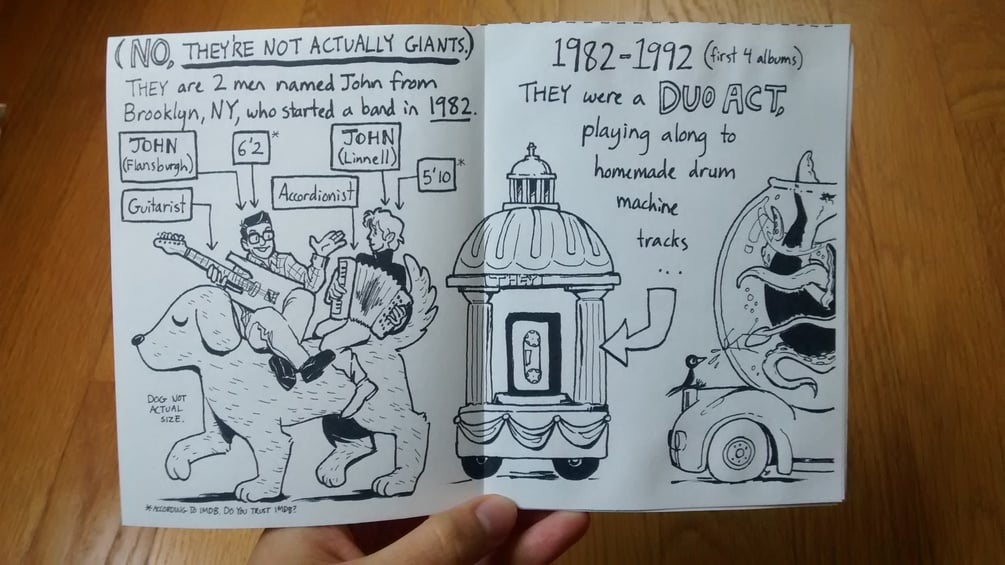 (NO, THEY'RE NOT ACTUALLY GIANTS.)
THEY are 2 men named John from
Brooklyn, NY, who started a band in 1982.
JOHN
(Flansburgh)
6'2*
JOHN
(Linnell)
5'10*
Guitarist
Accordionist
DOG NOT
ACTUAL
SIZE.
*ACCORDING TO IMDB. DO YOU TRUST IMDB?
1982-1992 (first 4 albums)
THEY were a DUO ACT,
playing along to
homemade drum
machine
tracks
...
THEY